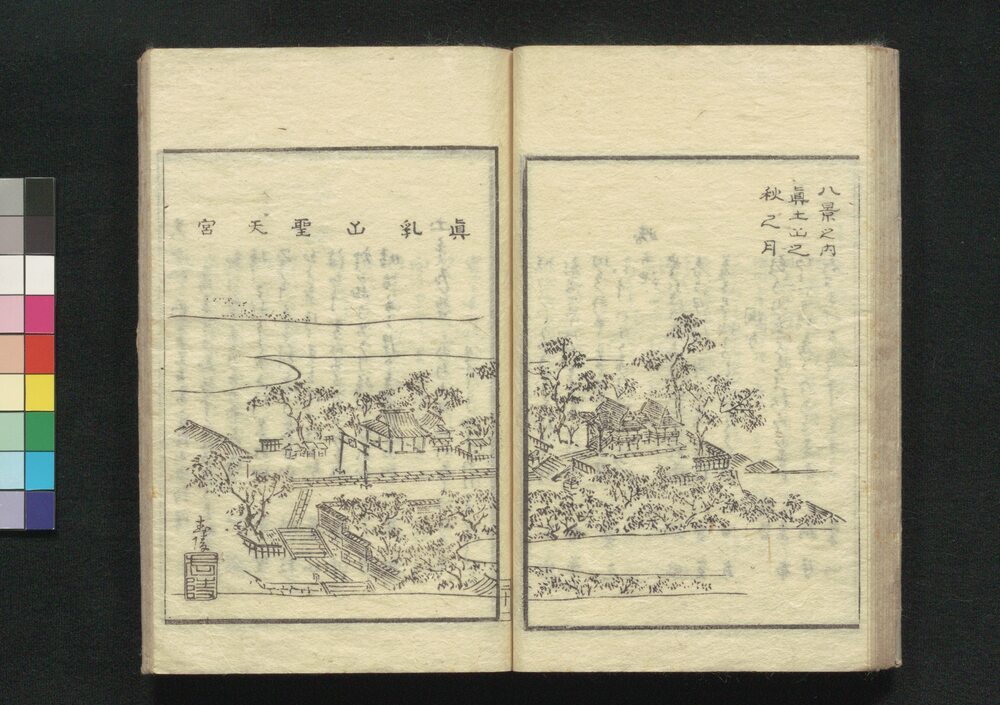 八景之内
眞土山之
秋之月
眞乳山聖天宮